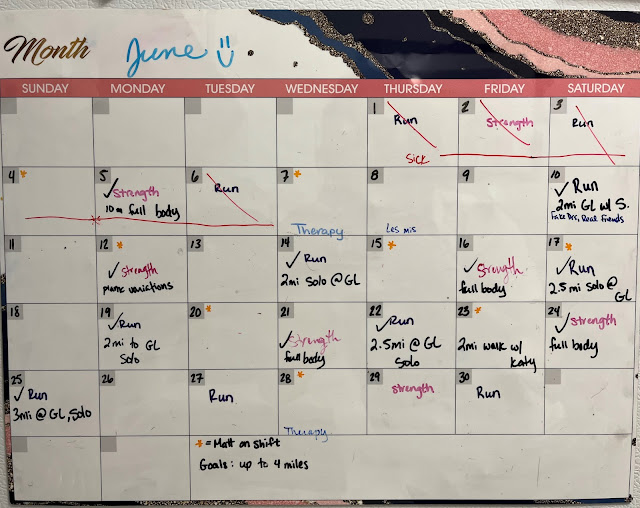 Month June
SUNDAY MONDAY TUESDAY WEDNESDAY THURSDAY FRIDAY SATURDAY
1 2 3
Run Strength Run
Sick
4 * 5 6 7 * 8 9 10
✓ Strength
10 full body
Run
Therapy
Les mis
✓ Run
2mi GL w/ S.
Fake Drs, Real Friends
11 12 * 13 14 15 * 16 17 *
✓ Strength
plank variations
✓ Run
2mi Solo @ GL
✓ Strength
full body
✓ Run
2.5 mi Solo @ GL
18 19 20 * 21 22 23 * 24
✓ Run
2mi to GL
Solo
✓ Strength
full body
✓ Run
2.5mi @ GL
Solo
2mi walk w/
Katy
✓ Strength
full body
25 26 27 28 * 29 30
✓ Run
3mi @ GL, Solo
Run
Therapy
Strength
Run
* = Matt on Shift
Goals: up to 4 miles